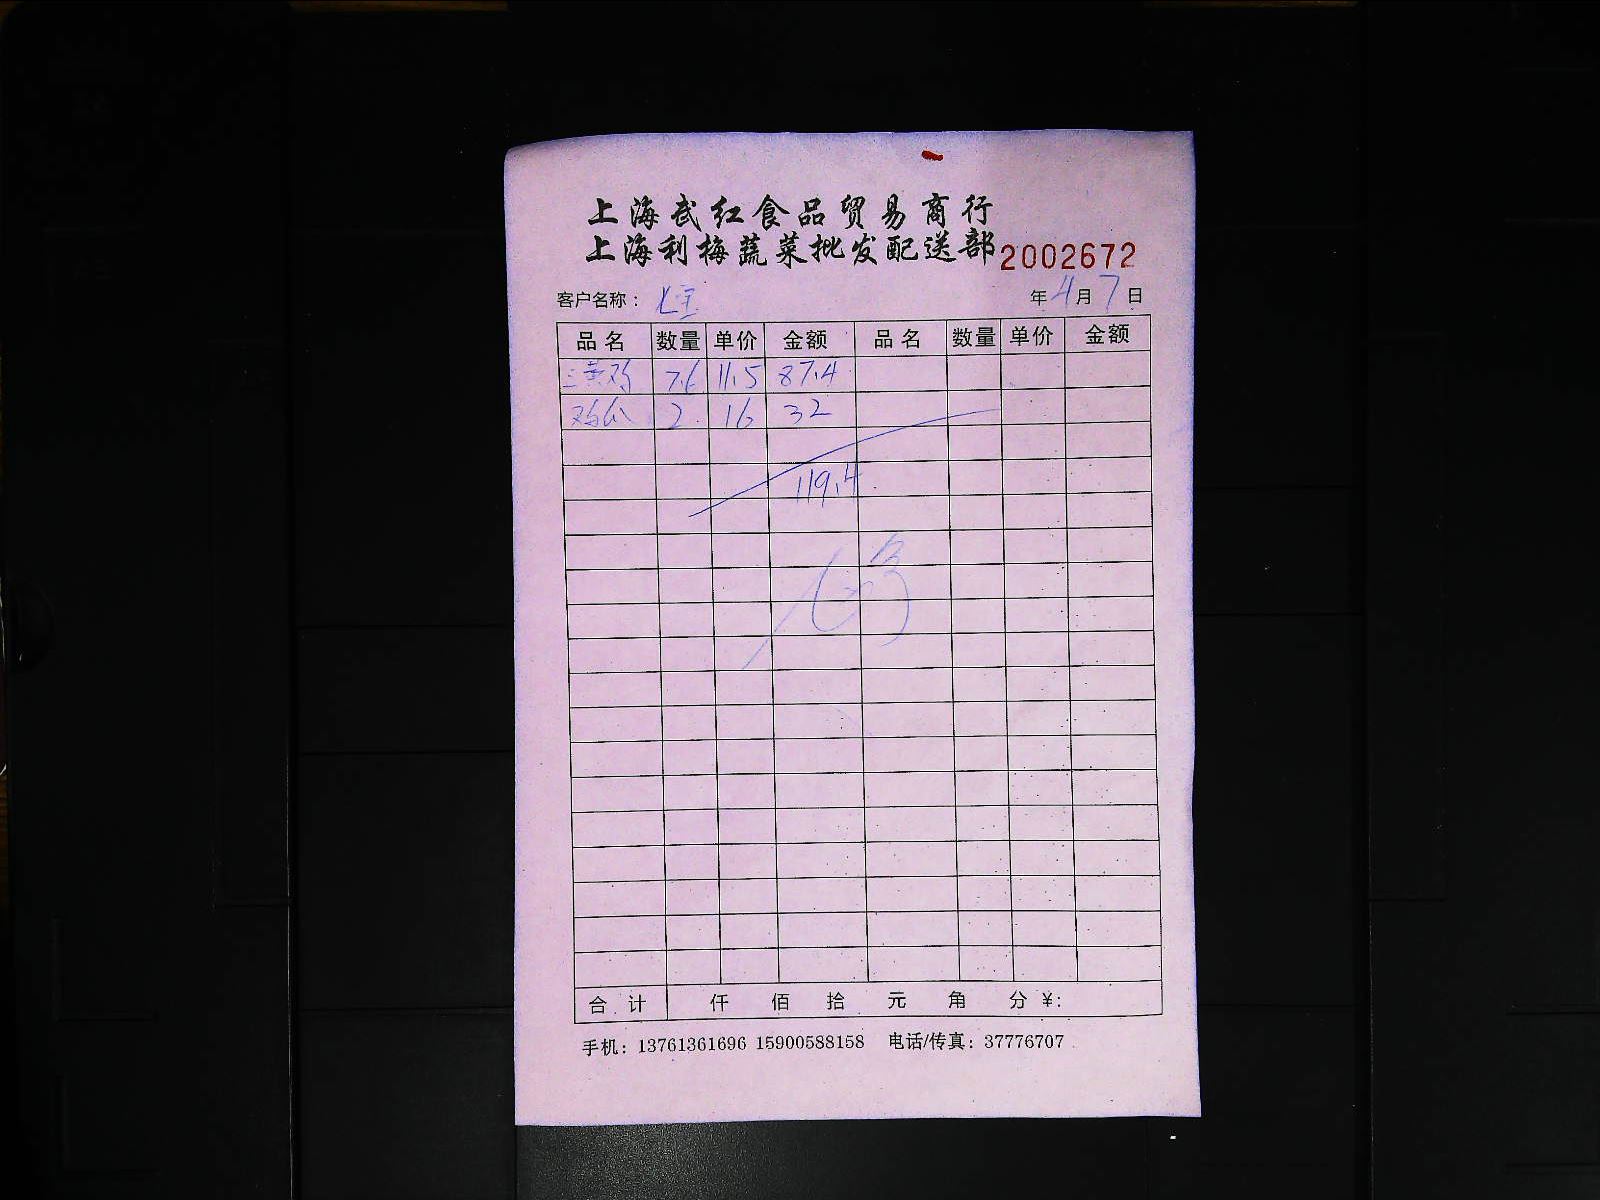 上海武红食品贸易商行
上海利梅蔬菜批发配送部 2002672
客户名称： 七宝 年 4 月 7 日
品名 数量 单价 金额 品名 数量 单价 金额
三黄鸡 7.6 11.5 87.4
2 16 32
119.4
合计 仟 佰 拾 元 角 分 ¥:
手机：13761361696 15900588158 电话/传真：37776707